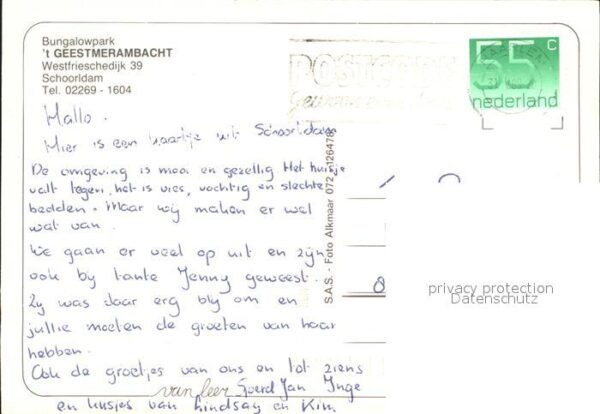 Bungalowpark
't GEESTMERAMBACHT
Westfrieschedijk 39
Schoorldam
Tel. 02269 - 1604
55 c
nederland
POSTCODE
S.A.S. - Foto Alkmaar 072 - 126478
Hallo.
Hier is een kaartje uit Schoorldam
De omgeving is mooi en gezellig Het huisje
valt tegen, het is vies, vochtig en slechte
bedden. Maar wij maken er wel
wat van.
We gaan er veel op uit en zijn
ook bij tante Jenny geweest.
Zij was daar erg blij om en
jullie moeten de groeten van haar
hebben.
Ook de groetjes van ons en tot ziens
van leer Sjoerd Jan Inge
en kusjes van Lindsay en Kim
privacy protection
Datenschutz